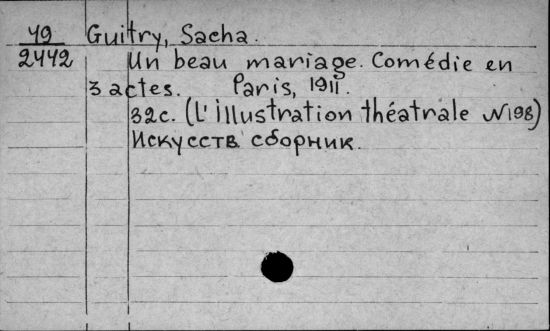 49 Guitry, Sacha.
2442 Un beau mariage. Comédie en
3 actes. Paris, 1911.
32с. (L'illustration théatrale N198)
Искусств сборник.